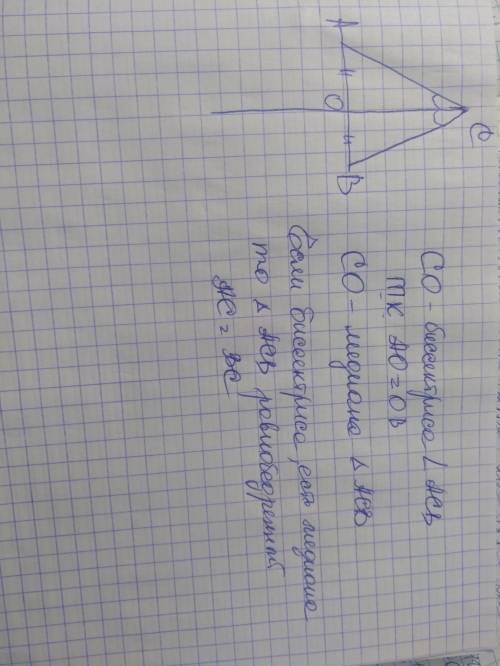 C
A
O
B
CO - биссектриса ∠ ACB
т.к. AO = OB
CO - медиана △ ACB
Если биссектриса, есть медиана
то △ ACB равнобедренный
AC = BC